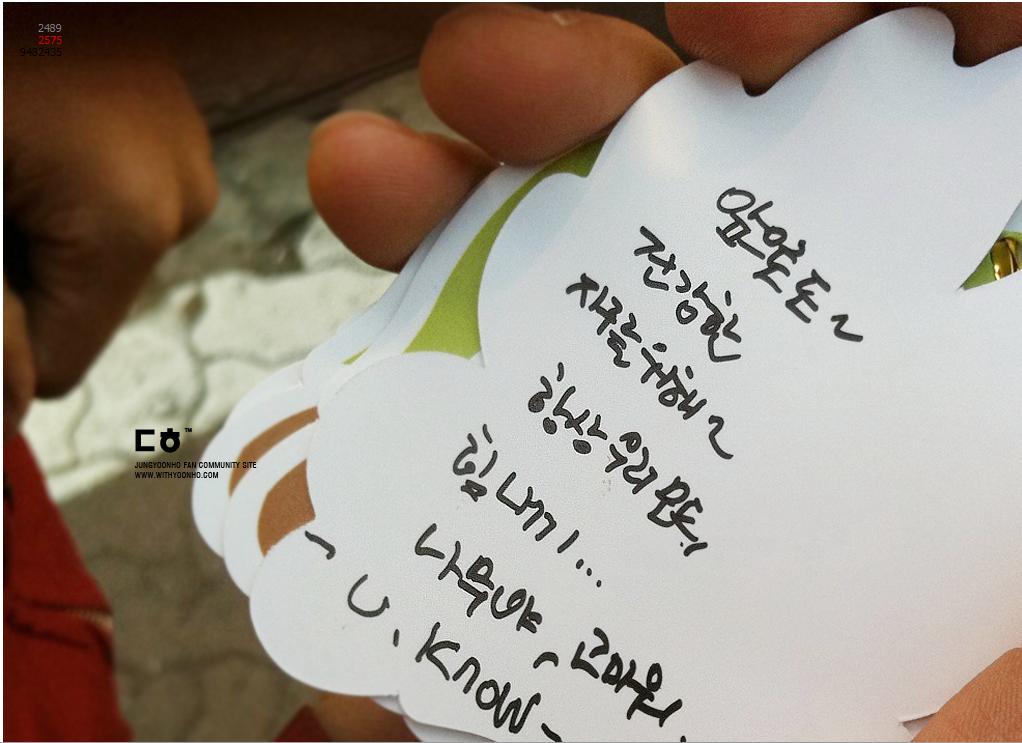 2489
2575
9482435
앞으로도~
건강한
지구를 위해~
항상 우리 모두
힘내기!...
나무야, 고마워!
- U. Know -
ㄷㅎ™
JUNGYOONHO FAN COMMUNITY SITE
WWW.WITHYOONHO.COM